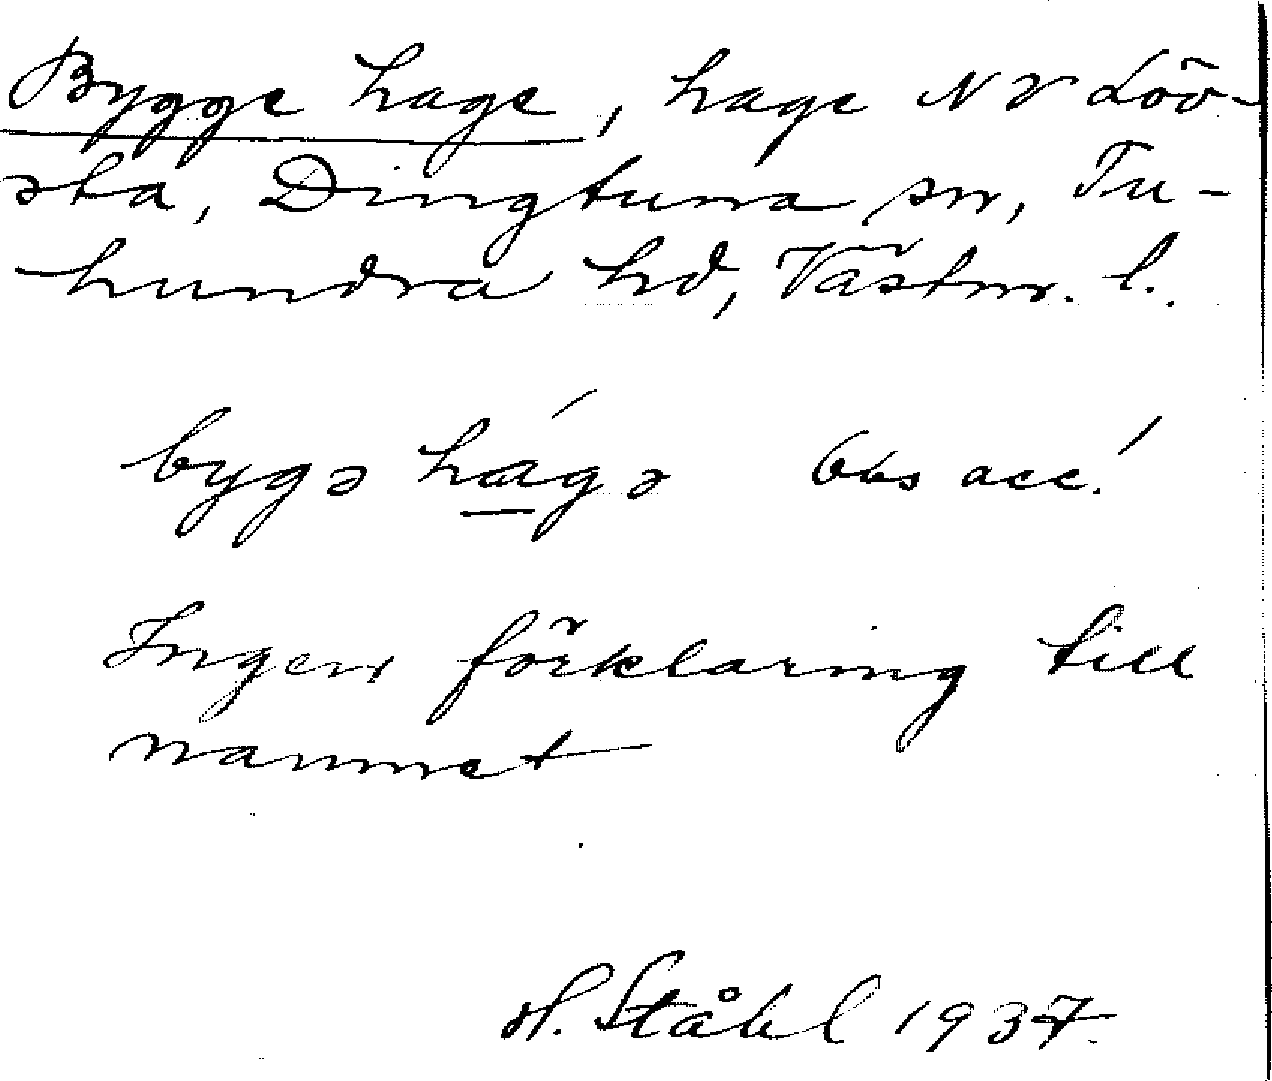 Bygge hage, hage NV Löv-
sta, Dingtuna sn, Tu-
hundra hd, Västm. l.
bygə hágə Obs acc!
Ingen förklaring till
namnet
H. Ståhl 1937.